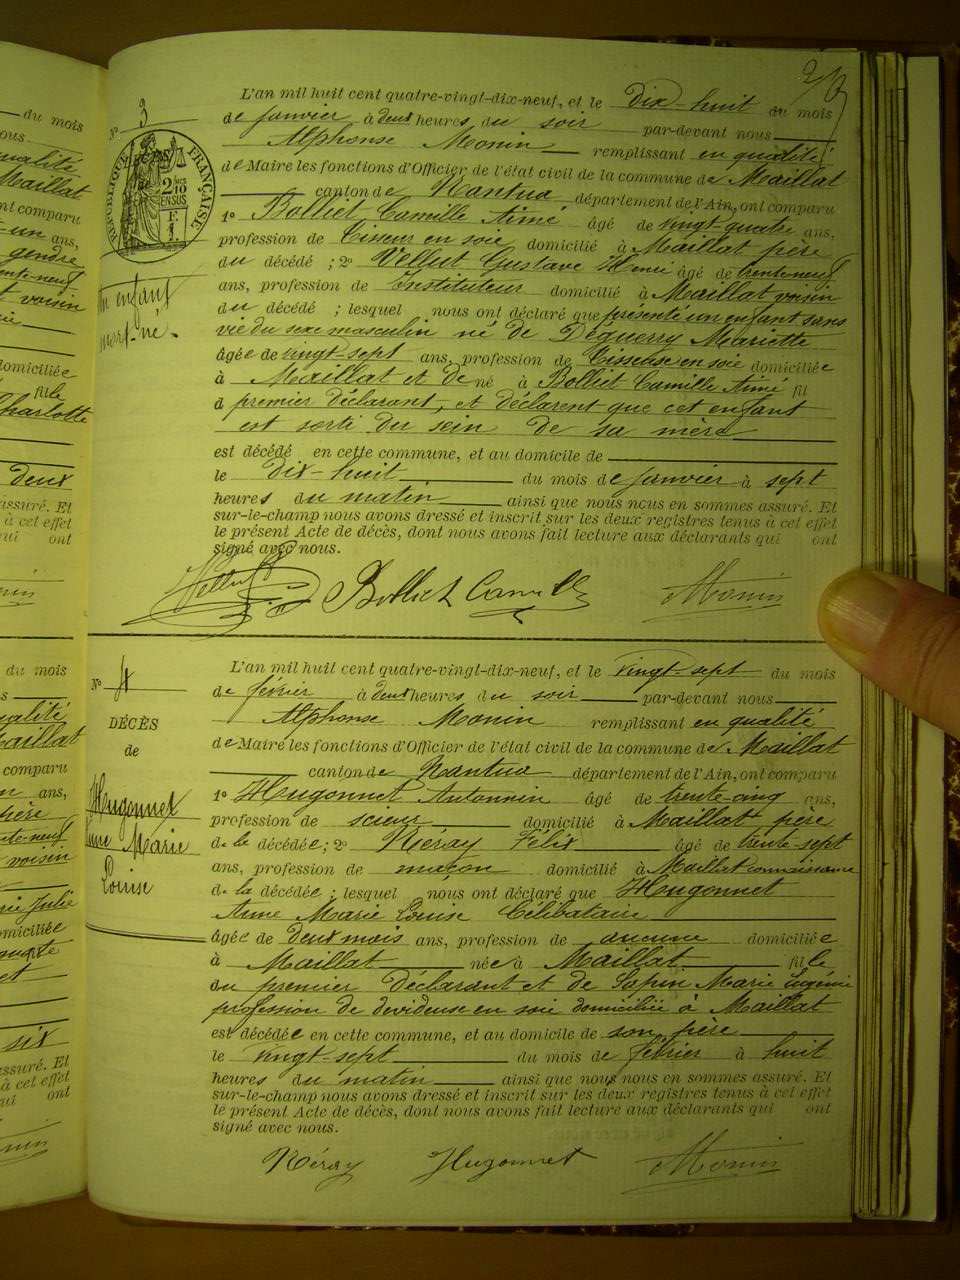 du mois
ous
qualité
Maillat
nt comparu
-un ans,
gendre
ente-neuf
t voisin
rie
domiciliée
fille
Charlotte
deux
assuré. Et
à cet effet
qui ont
nin
du mois
s
qualité
Maillat
comparu
n ans,
père
nte-neuf
voisin
rie Julie
omiciliée
et
six
ssuré. Et
à cet effet
ui ont
nin
Nº 3
RÉPUBLIQUE FRANÇAISE
2/10
EN SUS
Un enfant
mort-né.
L'an mil huit cent quatre-vingt-dix-neuf, et le dix-huit du mois
de janvier à deux heures du soir par-devant nous
Alphonse Monin remplissant en qualité
de Maire les fonctions d'Officier de l'état civil de la commune de Maillat
canton de Nantua département de l'Ain, ont comparu
1º Bolliet Camille Aimé âgé de vingt-quatre ans,
profession de Tisseur en soie domicilié à Maillat père
du décédé ; 2º Velluet Gustave Henri âgé de trente-neuf
ans, profession de Instituteur domicilié à Maillat voisin
du décédé ; lesquel nous ont déclaré que présenté un enfant sans
vie du sexe masculin né de Déguerry Mariette
âgée de vingt-sept ans, profession de Tisseuse en soie domiciliée
à Maillat et de né à Bolliet Camille Aimé fil
à premier déclarant, et déclarent que cet enfant
est sorti du sein de sa mère
est décédé en cette commune, et au domicile de
le dix-huit du mois de janvier à sept
heures du matin ainsi que nous nous en sommes assuré. Et
sur-le-champ nous avons dressé et inscrit sur les deux registres tenus à cet effet
le présent Acte de décès, dont nous avons fait lecture aux déclarants qui ont
signé avec nous.
Bolliet Camille Monin
Nº 4
DÉCÈS
de
Hugonnet
Anne Marie
Louise
L'an mil huit cent quatre-vingt-dix-neuf, et le vingt-sept du mois
de février à deux heures du soir par-devant nous
Alphonse Monin remplissant en qualité
de Maire les fonctions d'Officier de l'état civil de la commune de Maillat
canton de Nantua département de l'Ain, ont comparu
1º Hugonnet Antonnin âgé de trente-cinq ans,
profession de scieur domicilié à Maillat père
de la décédée; 2º Néray Félix âgé de trente-sept
ans, profession de maçon domicilié à Maillat connaissance
de la décédée ; lesquel nous ont déclaré que Hugonnet
Anne Marie Louise Célibataire
âgée de deux mois ans, profession de aucune domiciliée
à Maillat née à Maillat fille
du premier déclarant et de Sapin Marie Eugénie
profession de dévideuse en soie domiciliée à Maillat
est décédée en cette commune, et au domicile de son père
le vingt-sept du mois de février à huit
heures du matin ainsi que nous nous en sommes assuré. Et
sur-le-champ nous avons dressé et inscrit sur les deux registres tenus à cet effet
le présent Acte de décès, dont nous avons fait lecture aux déclarants qui ont
signé avec nous.
Néray Hugonnet Monin